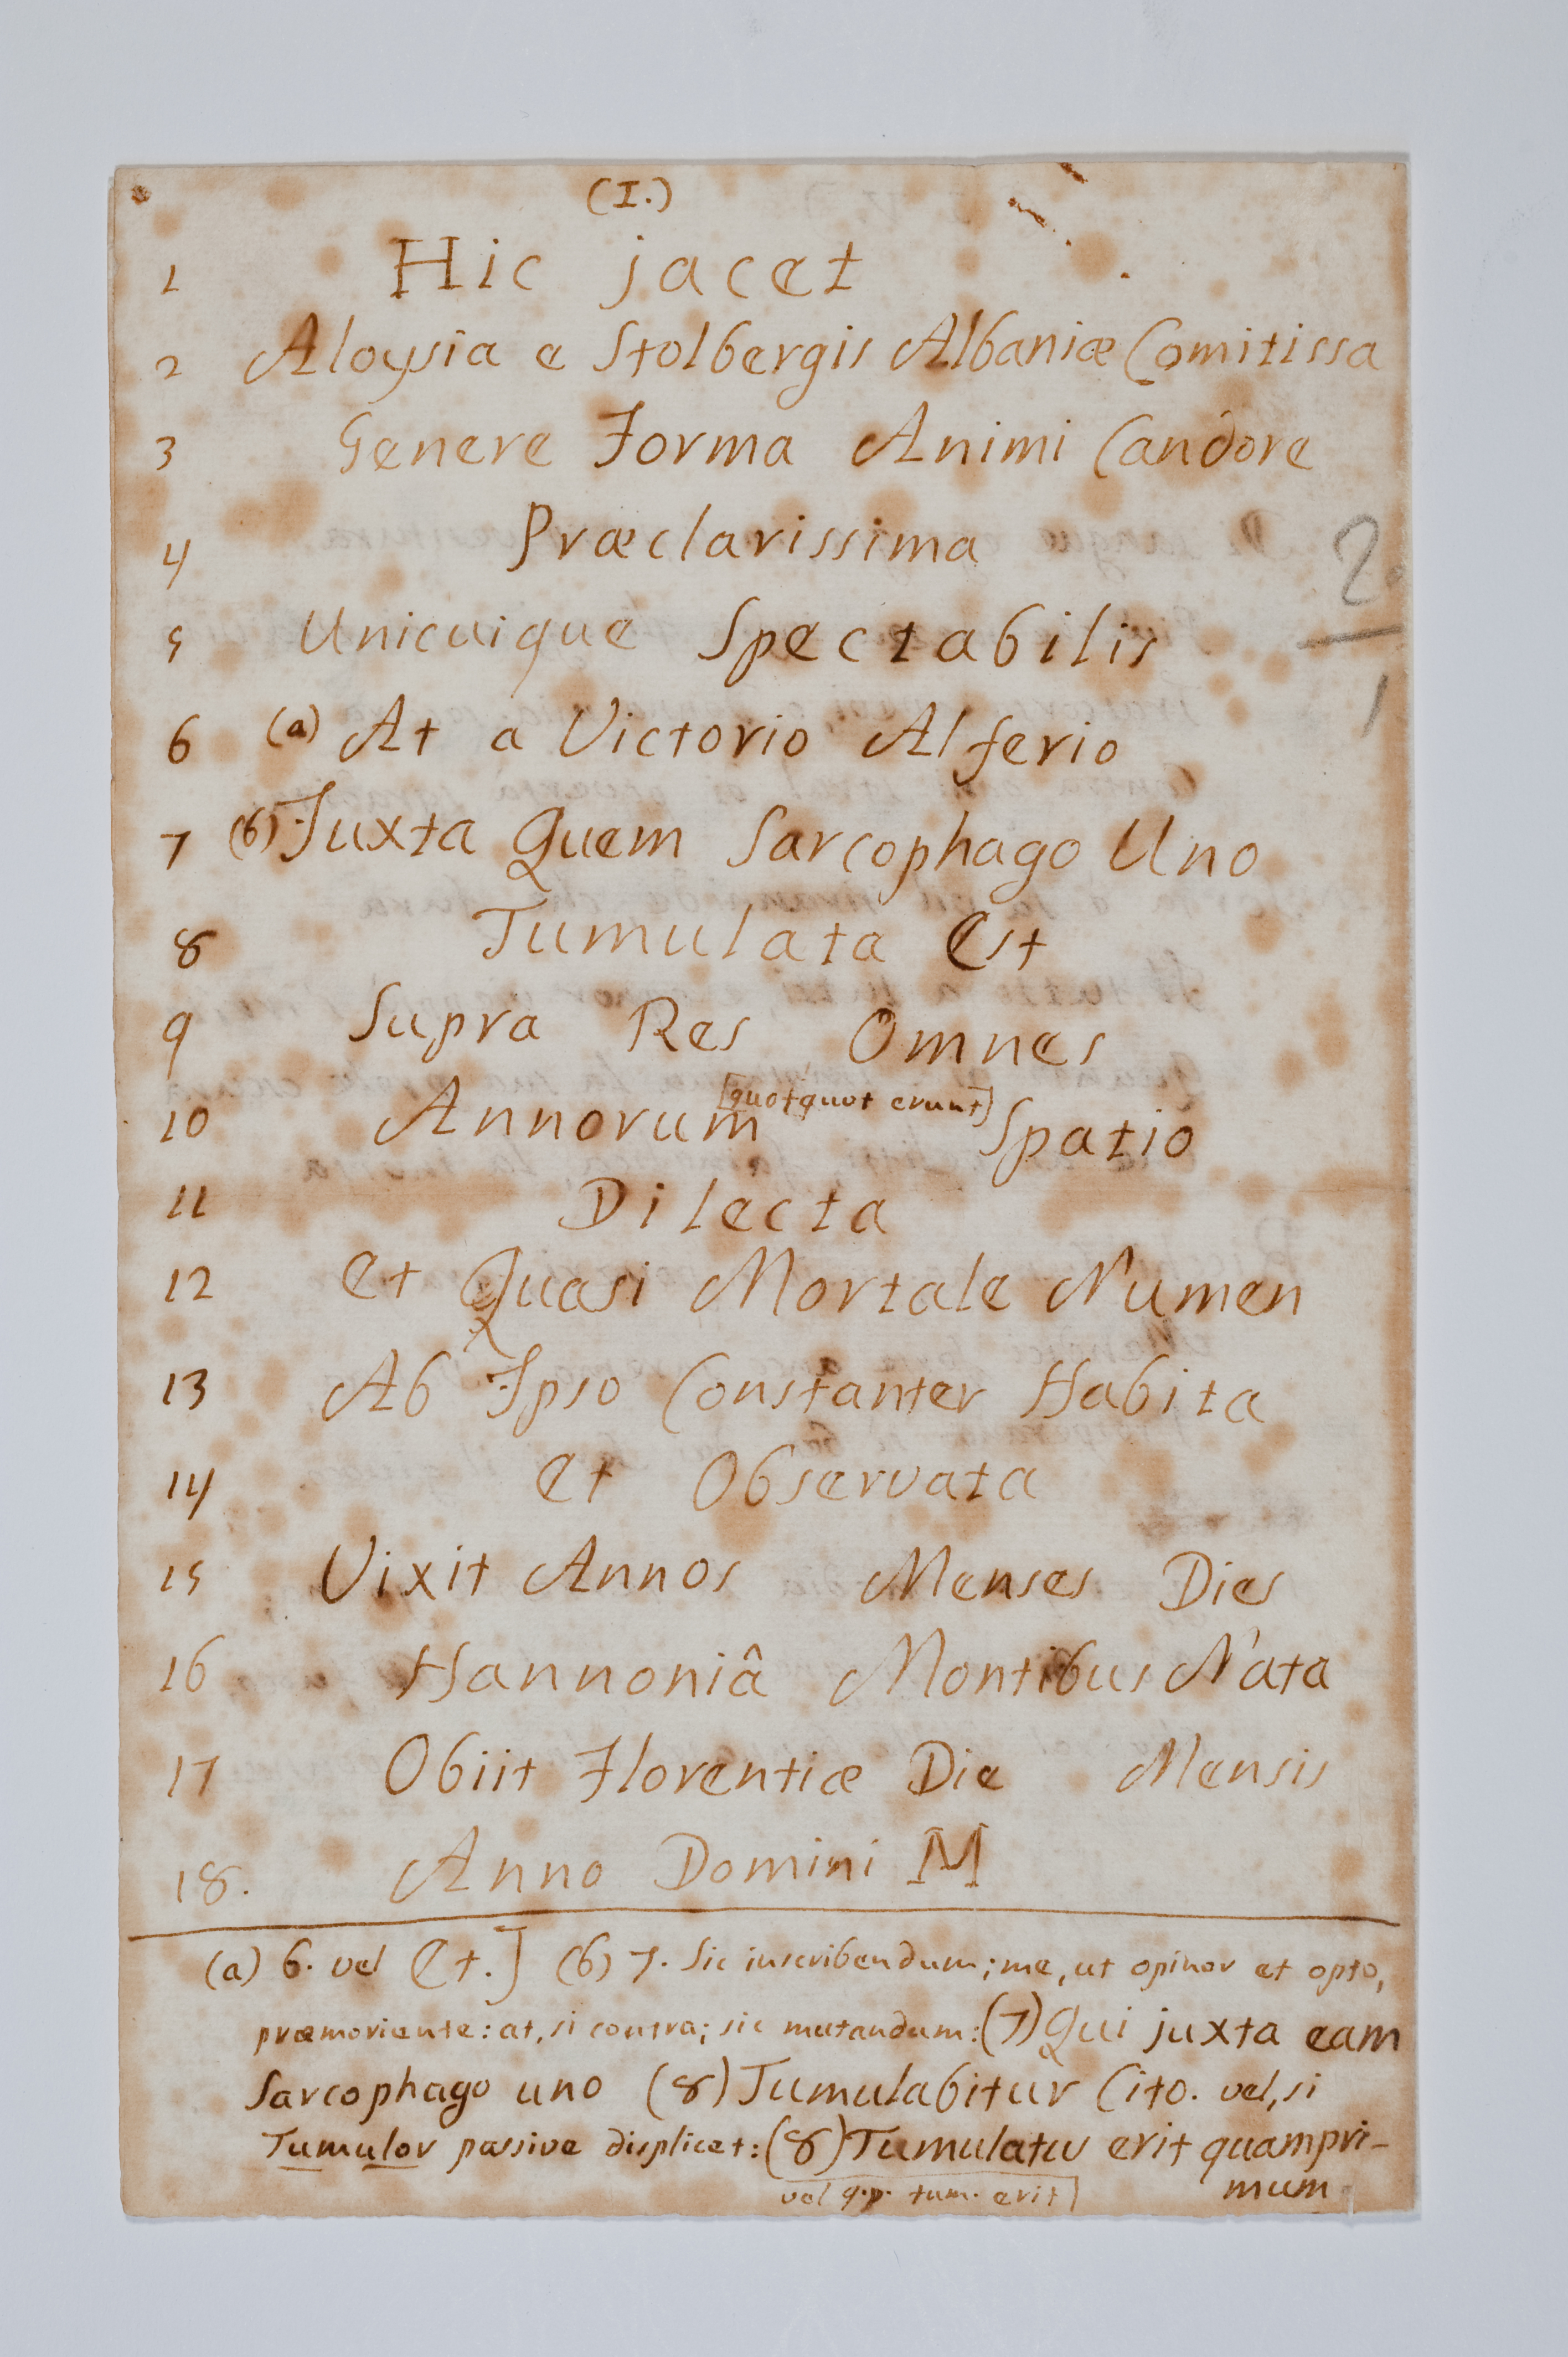 (I.)
1 Hic jacet
2 Aloysia e Stolbergis Albaniæ Comitissa
3 Genere Forma Animi Candore
4 Præclarissima
5 Unicuique Spectabilis
6 (a) At a Victorio Alferio
7 (b) Juxta Quem Sarcophago Uno
8 Tumulata Est
9 Supra Res Omnes
10 Annorum [quotquot erunt] Spatio
11 Dilecta
12 Et Quasi Mortale Numen
13 Ab Ipso Constanter Habita
14 Et Observata
15 Vixit Annos Menses Dies
16 Hannoniâ Montibus Nata
17 Obiit Florentiæ Die Mensis
18. Anno Domini M
(a) 6. vel Et.] (b) 7. Sic inscribendum; me, ut opinor et opto,
præmoriente: at, si contra; sic mutandum: (7) Qui juxta eam
Sarcophago uno (8) Tumulabitur Cito. vel, si
Tumulor passive displicet: (8) Tumulatus erit quampri-
mum
vel q.p. tum. erit]
2
1